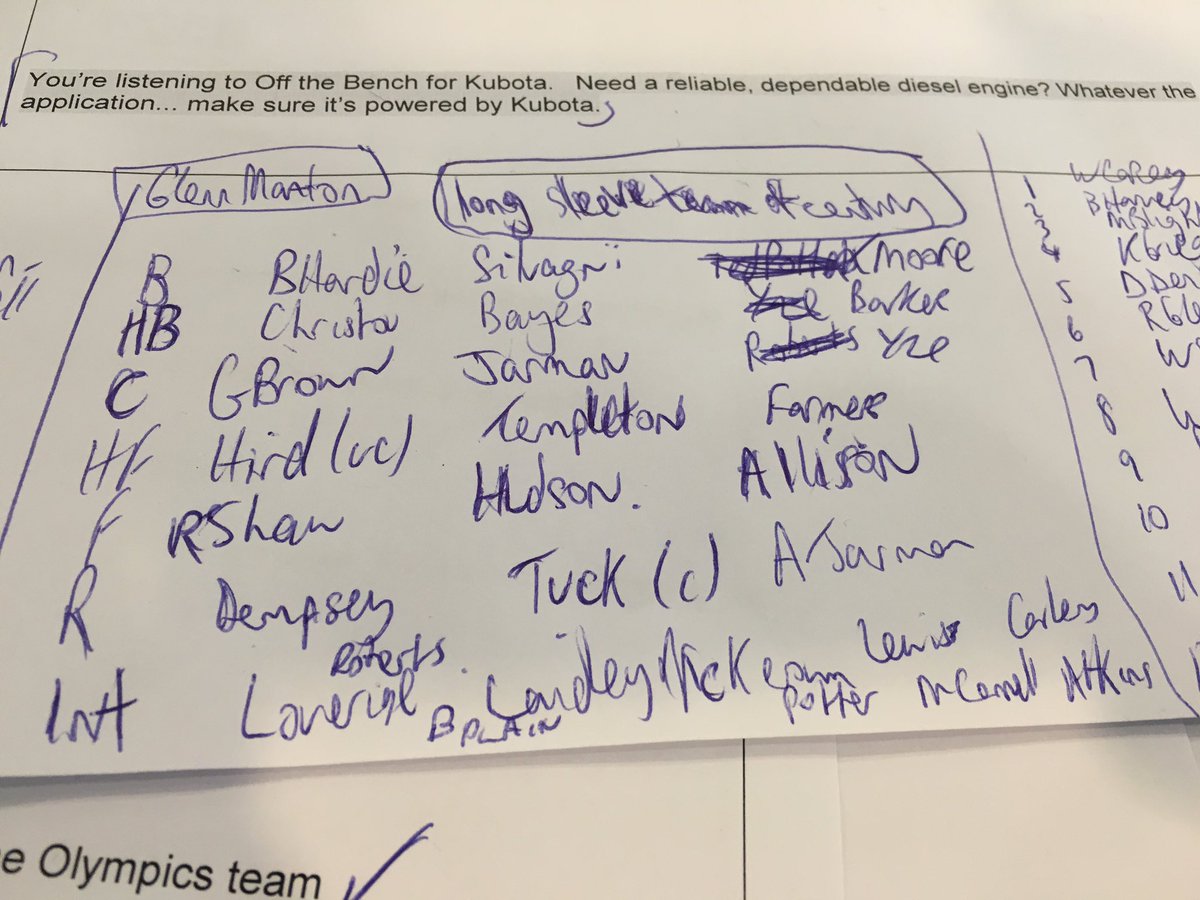 You're listening to Off the Bench for Kubota. Need a reliable, dependable diesel engine? Whatever the
application... make sure it's powered by Kubota.
Glenn Manton long sleeve team of century
B BHardie Silvagni Moore
HB Christou Bayes Barker
C GBrown Jarman Yze
HF Hird (vc) Templeton Farmer
F RShaw Hudson. Allison
R Dempsey Tuck (c) A Jarman
Roberts. Lewis Corley
Int Loveridge Laidley Mckenna Potter McConnell Atkins
B PLAIN
1 WCarey
2 BHarvey
3
4
5
6
7
8
9
10
e Olympics team